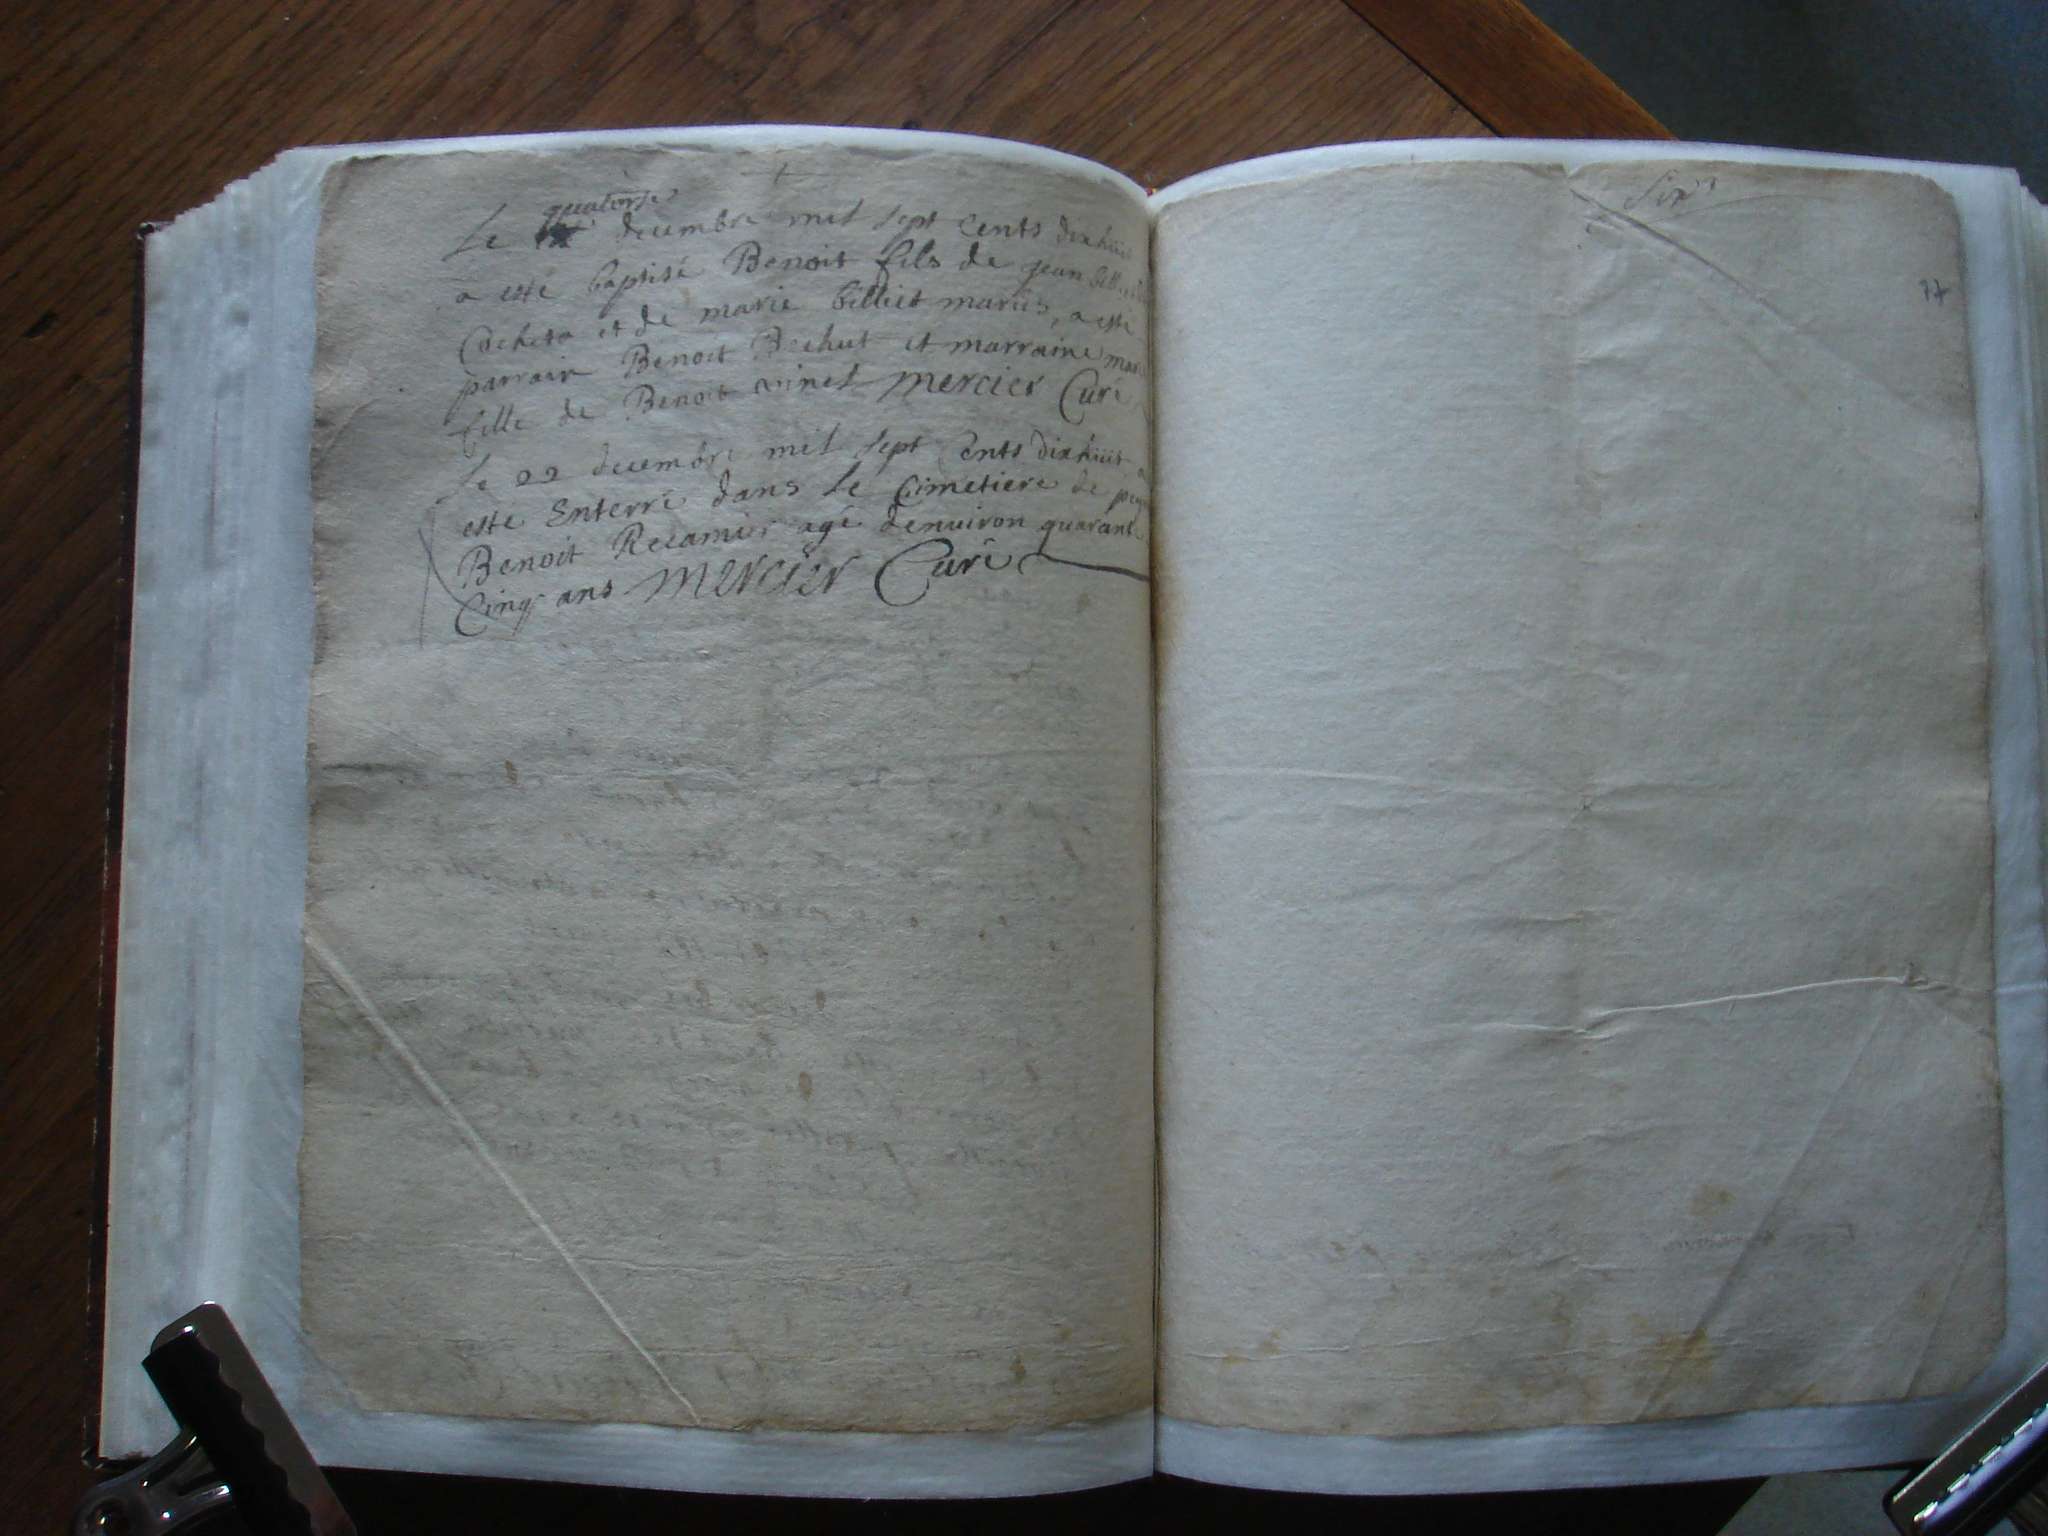 quatorse
Le decembre mil sept cents dixhuit
a esté baptisé Benoit fils de jean
Cocheta et de marie billiet mariés, a esté
parrain Benoit Bechut et marraine
fille de Benoit vinet mercier Curé
Le 22 decembre mil sept Cents dixhuit a
esté Enterré dans le Cimetiere de
Benoit Recamier agé denuiron quarante
Cinq ans mercier Curé
Six
17